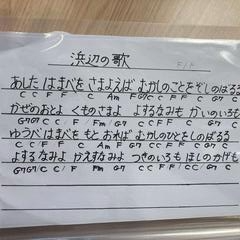 浜辺の歌 F / F
あした はまべを さまよえば むかしのことを ぞしのばるる
C C F F C Am F G7 C C F F C G7 C
かぜのおとよ くものさまよ よするなみも かいのいろも
G7 G7 C C / F / Fm / G7 C C F F C G7 C
ゆうべ はまべを もとおれば むかしのひとぞ しのばるる
C C F F C Am F G7 C C F F C G7 C
よするなみよ かえすなみよ つきのいろも ほしのかげも
G7 G7 C C / F / Fm / G7 C C F F / C C / G7 / C